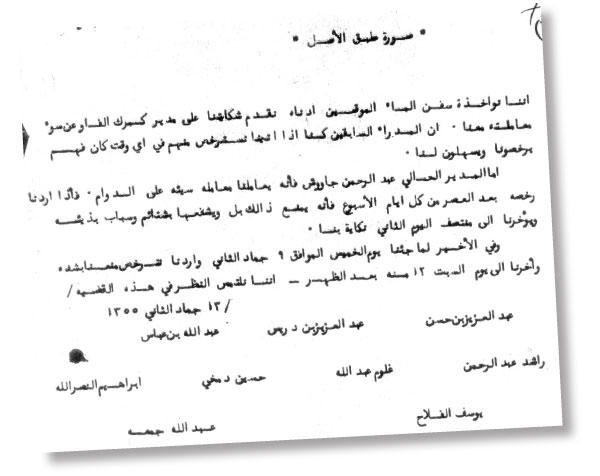 * صورة طبق الأصل *
اننا نواخذة سفن الماء الموقعين ادناه نقدم شكايتنا على مدير كمرك الفاو عن سوء
معاملته معنا . ان المدراء السابقين كنا اذا اتينا نسترخص منهم في اي وقت كان فهم
يرخصونا ويسهلون لنا .
اما المدير الحالي عبد الرحمن جاووش فأنه يعاملنا معامله سيئه على الدوام . فأذا اردنا
رخصه بعد العصر من كل ايام الأسبوع فأنه يمنع ذالك بل ويشفعها بشتائم وسباب بذيئه
ويؤخرنا الى منتصف اليوم الثاني نكاية بنا .
وفي الأخير لما جئنا يوم الخميس الموافق ٩ جماد الثاني واردنا نترخص منعنا بشده
وأخرنا الى يوم السبت ١٢ منه بعد الظهر _ اننا نلتمس النظر في هذه القضيه /
/ ١٣ جماد الثاني ١٣٥٥
عبد العزيز بن حسن عبد العزيز بن دريس عبد الله بن عباس
راشد عبد الرحمن غلوم عبد الله حسين دمخي ابراهيم النصرالله
يوسف الفلاح عبد الله جمعه